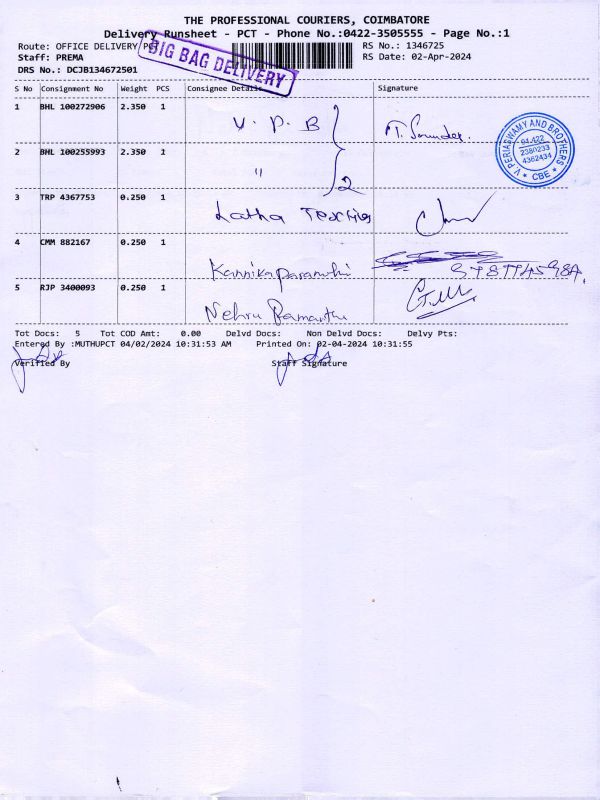 THE PROFESSIONAL COURIERS, COIMBATORE
Delivery Runsheet - PCT - Phone No.:0422-3505555 - Page No.:1
Route: OFFICE DELIVERY
RS No.: 1346725
Staff: PREMA
RS Date: 02-Apr-2024
DRS No.: DCJB134672501
BIG BAG DELIVERY
S No Consignment No Weight PCS Consignee Details Signature
1 BHL 100272906 2.350 1 V. P. B
2 BHL 100255993 2.350 1 "
2
V. PERIASWAMY AND BROTHERS
94422
2380233
4362434
* CBE *
3 TRP 4367753 0.250 1 Latha
4 CMM 882167 0.250 1
5 RJP 3400093 0.250 1 Nehru
Tot Docs: 5 Tot COD Amt: 0.00 Delvd Docs: Non Delvd Docs: Delvy Pts:
Entered By :MUTHUPCT 04/02/2024 10:31:53 AM Printed On: 02-04-2024 10:31:55
Verified By Staff Signature